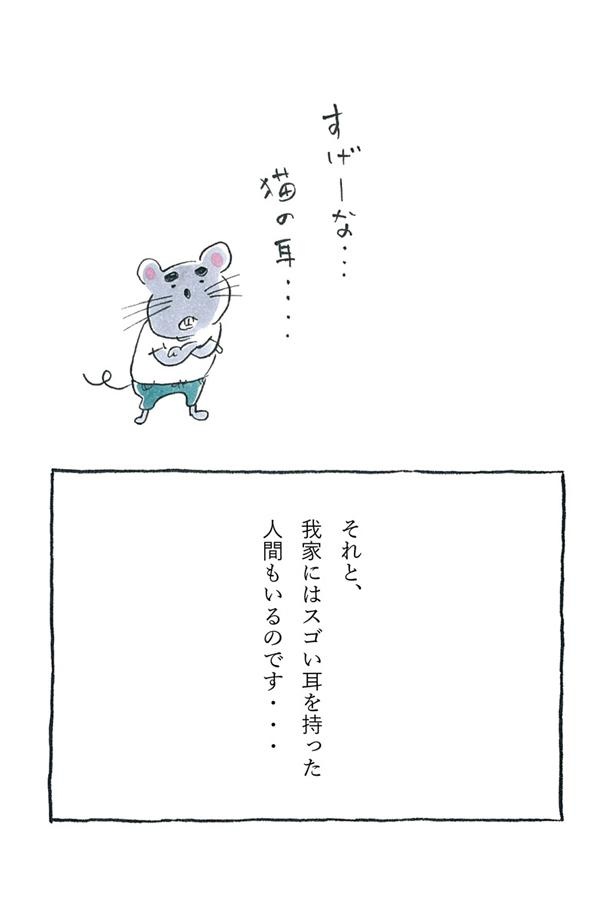 すげーな・・・
猫の耳・・・・
それと、
我家にはスゴい耳を持った
人間もいるのです・・・